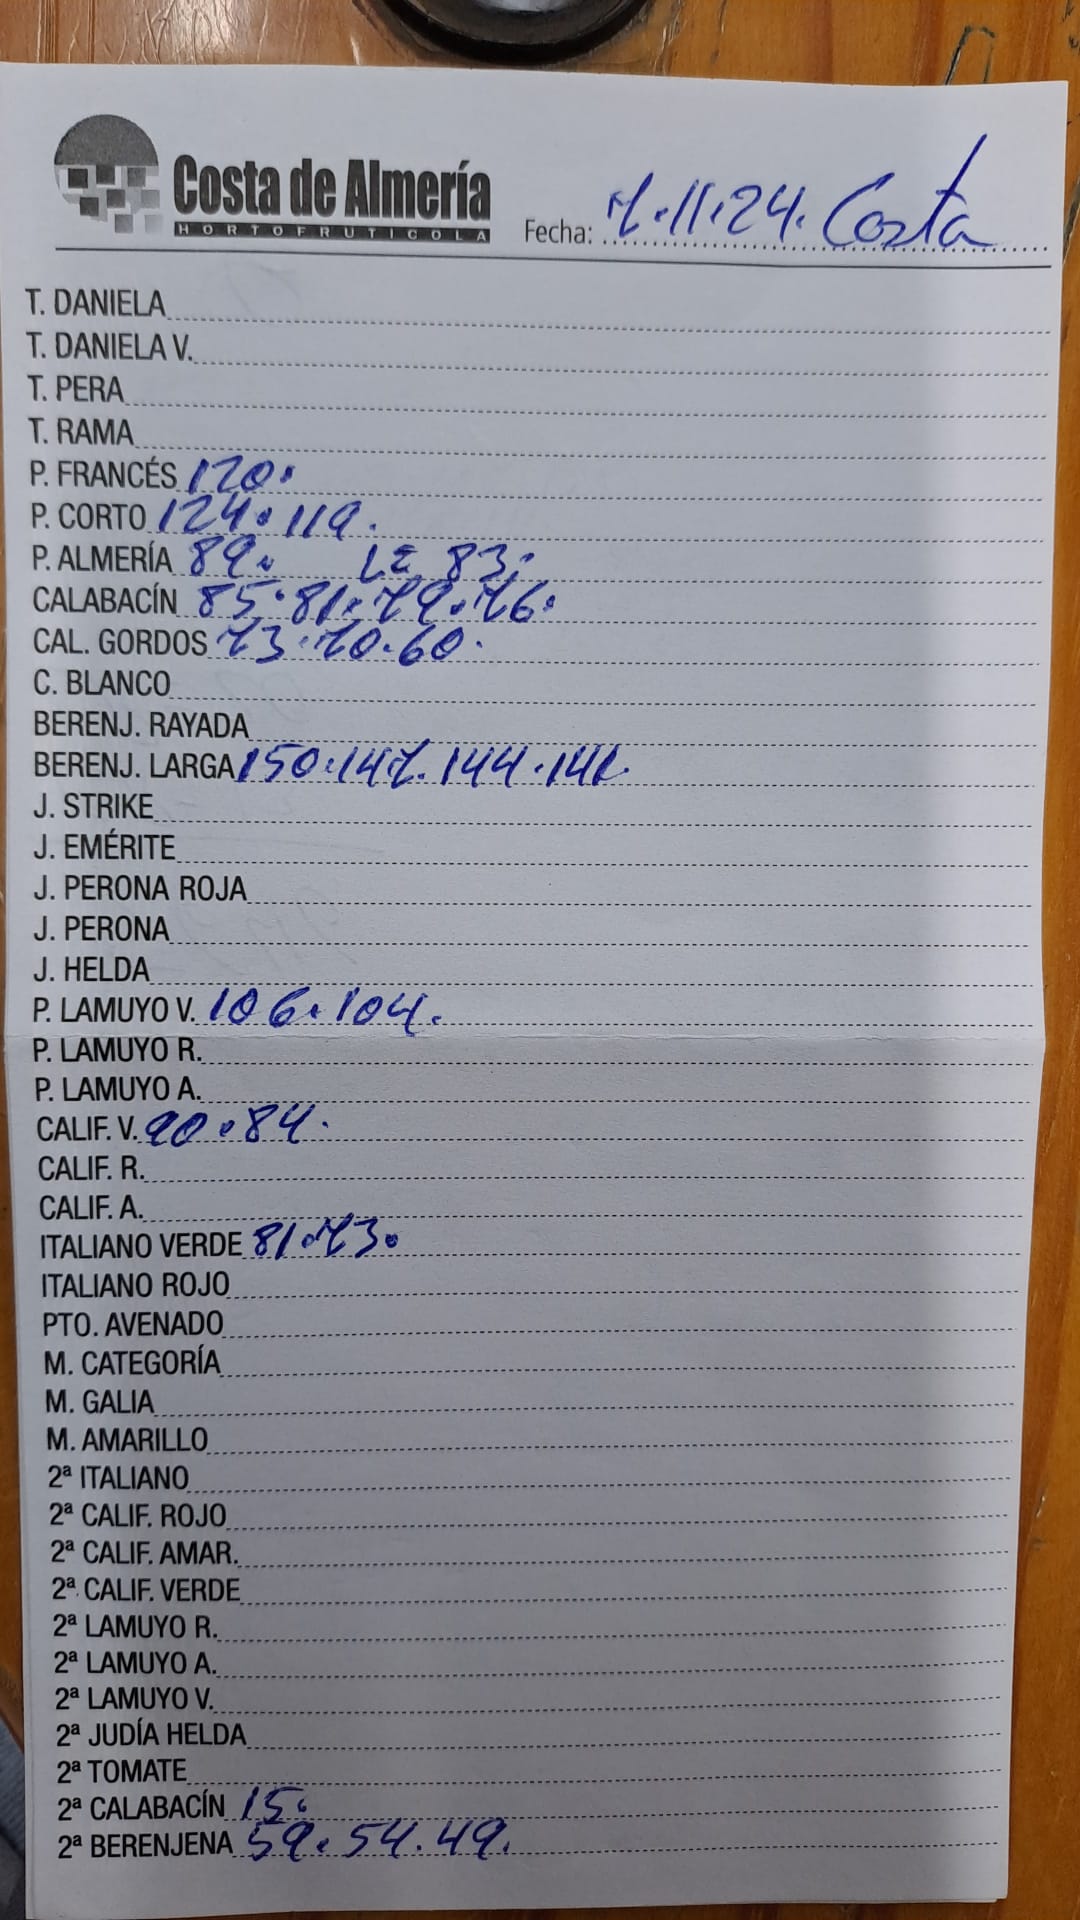 Costa de Almería
HORTOFRUTICOLA
Fecha: 7.11.24. Costa
T. DANIELA
T. DANIELA V.
T. PERA
T. RAMA
P. FRANCÉS 120.
P. CORTO 124.119.
P. ALMERÍA 89. LE 83.
CALABACÍN 85.81.79.76.
CAL. GORDOS 73.70.60.
C. BLANCO
BERENJ. RAYADA
BERENJ. LARGA 150.147.144.141.
J. STRIKE
J. EMÉRITE
J. PERONA ROJA
J. PERONA
J. HELDA
P. LAMUYO V. 106.104.
P. LAMUYO R.
P. LAMUYO A.
CALIF. V. 90.84.
CALIF. R.
CALIF. A.
ITALIANO VERDE 81.73.
ITALIANO ROJO
PTO. AVENADO
M. CATEGORÍA
M. GALIA
M. AMARILLO
2ª ITALIANO
2ª CALIF. ROJO
2ª CALIF. AMAR.
2ª CALIF. VERDE
2ª LAMUYO R.
2ª LAMUYO A.
2ª LAMUYO V.
2ª JUDÍA HELDA
2ª TOMATE
2ª CALABACÍN 15.
2ª BERENJENA 59.54.49.